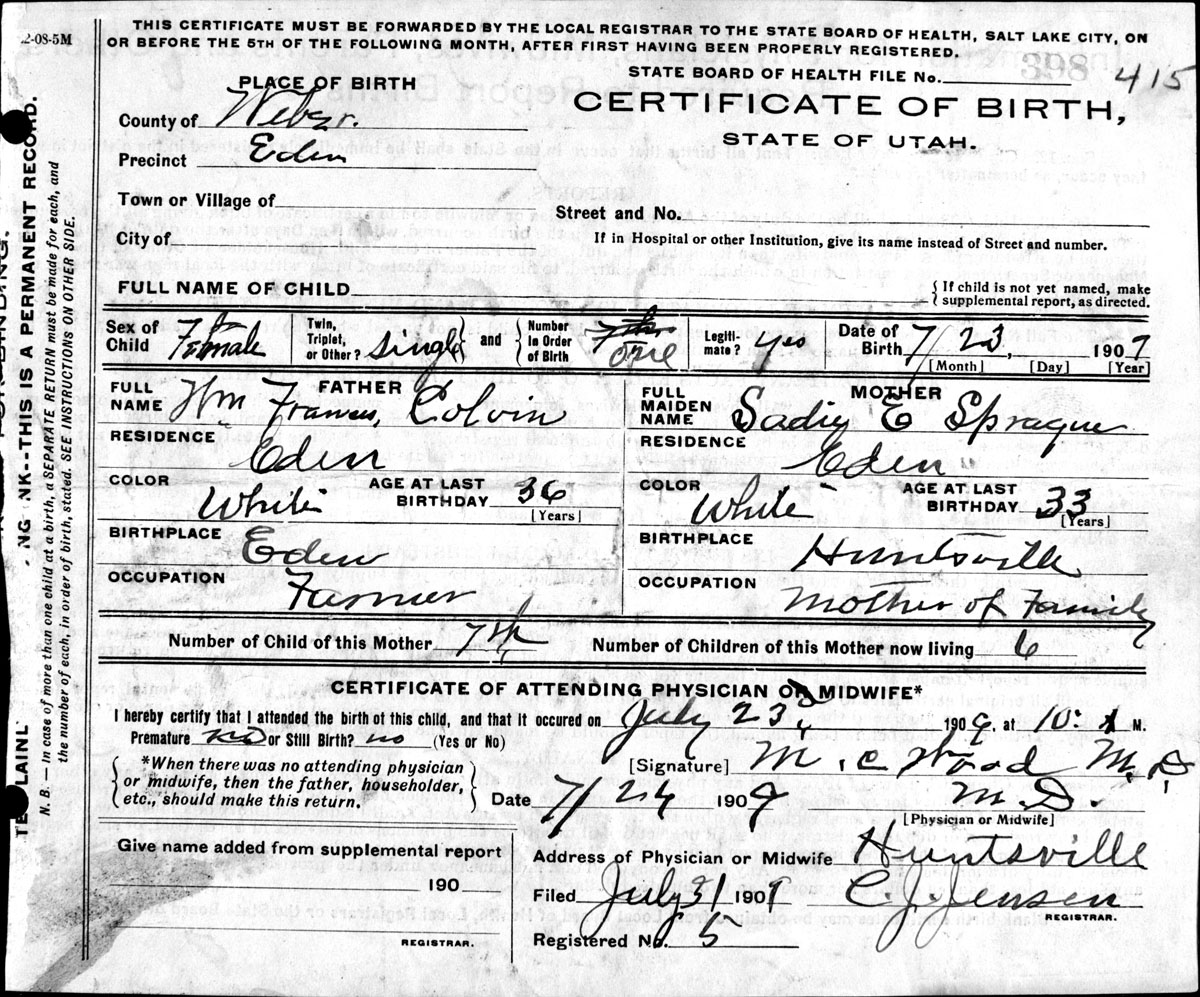 2-08-5M
THIS CERTIFICATE MUST BE FORWARDED BY THE LOCAL REGISTRAR TO THE STATE BOARD OF HEALTH, SALT LAKE CITY, ON
OR BEFORE THE 5TH OF THE FOLLOWING MONTH, AFTER FIRST HAVING BEEN PROPERLY REGISTERED.
STATE BOARD OF HEALTH FILE No. 415
398
CERTIFICATE OF BIRTH,
STATE OF UTAH.
PLACE OF BIRTH
County of Weber.
Precinct Eden
Town or Village of
Street and No.
City of
If in Hospital or other Institution, give its name instead of Street and number.
FULL NAME OF CHILD
If child is not yet named, make
supplemental report, as directed.
Sex of Child Female
Twin, Triplet, or Other? Single and Number in Order of Birth one
Legitimate? yes
Date of Birth 7/23, 1909
[Month] [Day] [Year]
FATHER
FULL NAME Wm Francis, Colvin
RESIDENCE Eden
COLOR White AGE AT LAST BIRTHDAY 36
[Years]
BIRTHPLACE Eden
OCCUPATION Farmer
MOTHER
FULL MAIDEN NAME Sadie E Sprague
RESIDENCE Eden
COLOR White AGE AT LAST BIRTHDAY 33
[Years]
BIRTHPLACE Huntsville
OCCUPATION Mother of Family
Number of Child of this Mother 7th Number of Children of this Mother now living 6
CERTIFICATE OF ATTENDING PHYSICIAN OR MIDWIFE*
I hereby certify that I attended the birth of this child, and that it occured on July 23d, 1909 at 10: M.
Premature no or Still Birth? no (Yes or No)
[Signature] M. C Wood M.D.
*When there was no attending physician
or midwife, then the father, householder,
etc., should make this return.
Date 7/24 1909 M.D.
[Physician or Midwife]
Give name added from supplemental report
190
REGISTRAR.
Address of Physician or Midwife Huntsville
Filed July 31 1909 C. J. Jensen
REGISTRAR.
Registered No. 5
NK--THIS IS A PERMANENT RECORD.
N. B. — In case of more than one child at a birth, a SEPARATE RETURN must be made for each, and
the number of each, in order of birth, stated. SEE INSTRUCTIONS ON OTHER SIDE.